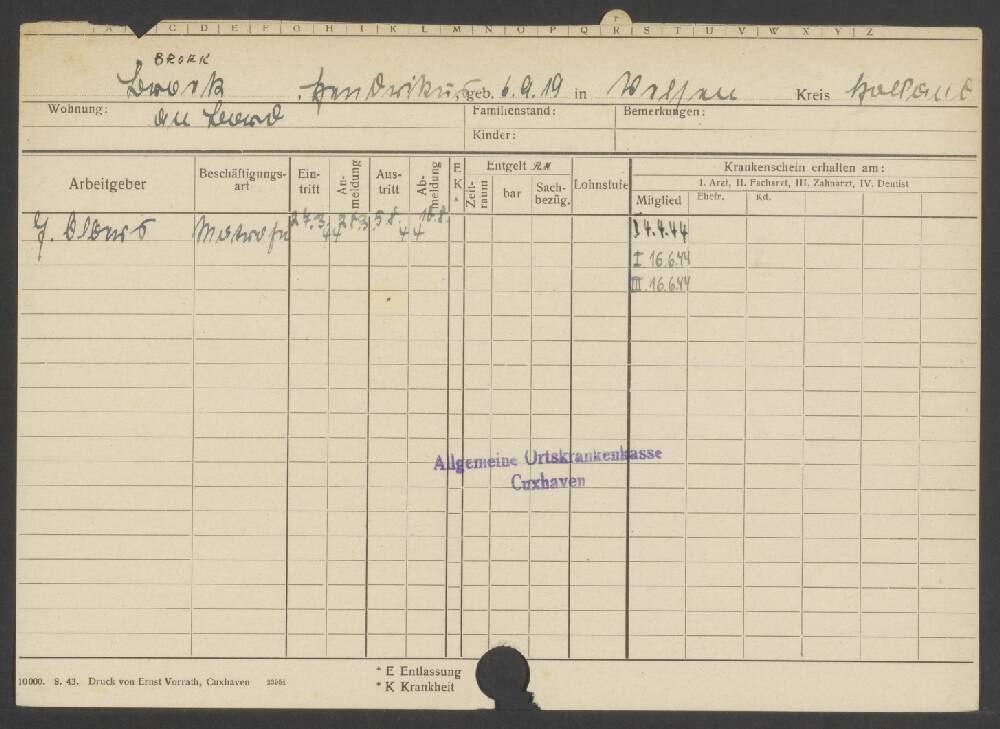 A C D E F G H I K L M N O P Q R S T U V W X Y Z
BROEK
Broek, Hendrikus geb. 6.9.19 in Velsen Kreis Holland
Wohnung: an Bord Familienstand: Bemerkungen:
Kinder:
Arbeitgeber Beschäftigungsart Eintritt Anmeldung Austritt Abmeldung E K * Entgelt RM Zeitraum bar Sachbezüg. Lohnstufe Krankenschein erhalten am:
I. Arzt, II. Facharzt, III. Zahnarzt, IV. Dentist
Mitglied Ehefr. Kd.
J. Albers Matrose 27.3.44 28.3. 5.8.44 10.8. I 4.4.44
I 16.6.44
III 16.6.44
Allgemeine Ortskrankenkasse
Cuxhaven
* E Entlassung
* K Krankheit
10000. 8. 43. Druck von Ernst Vorrath, Cuxhaven